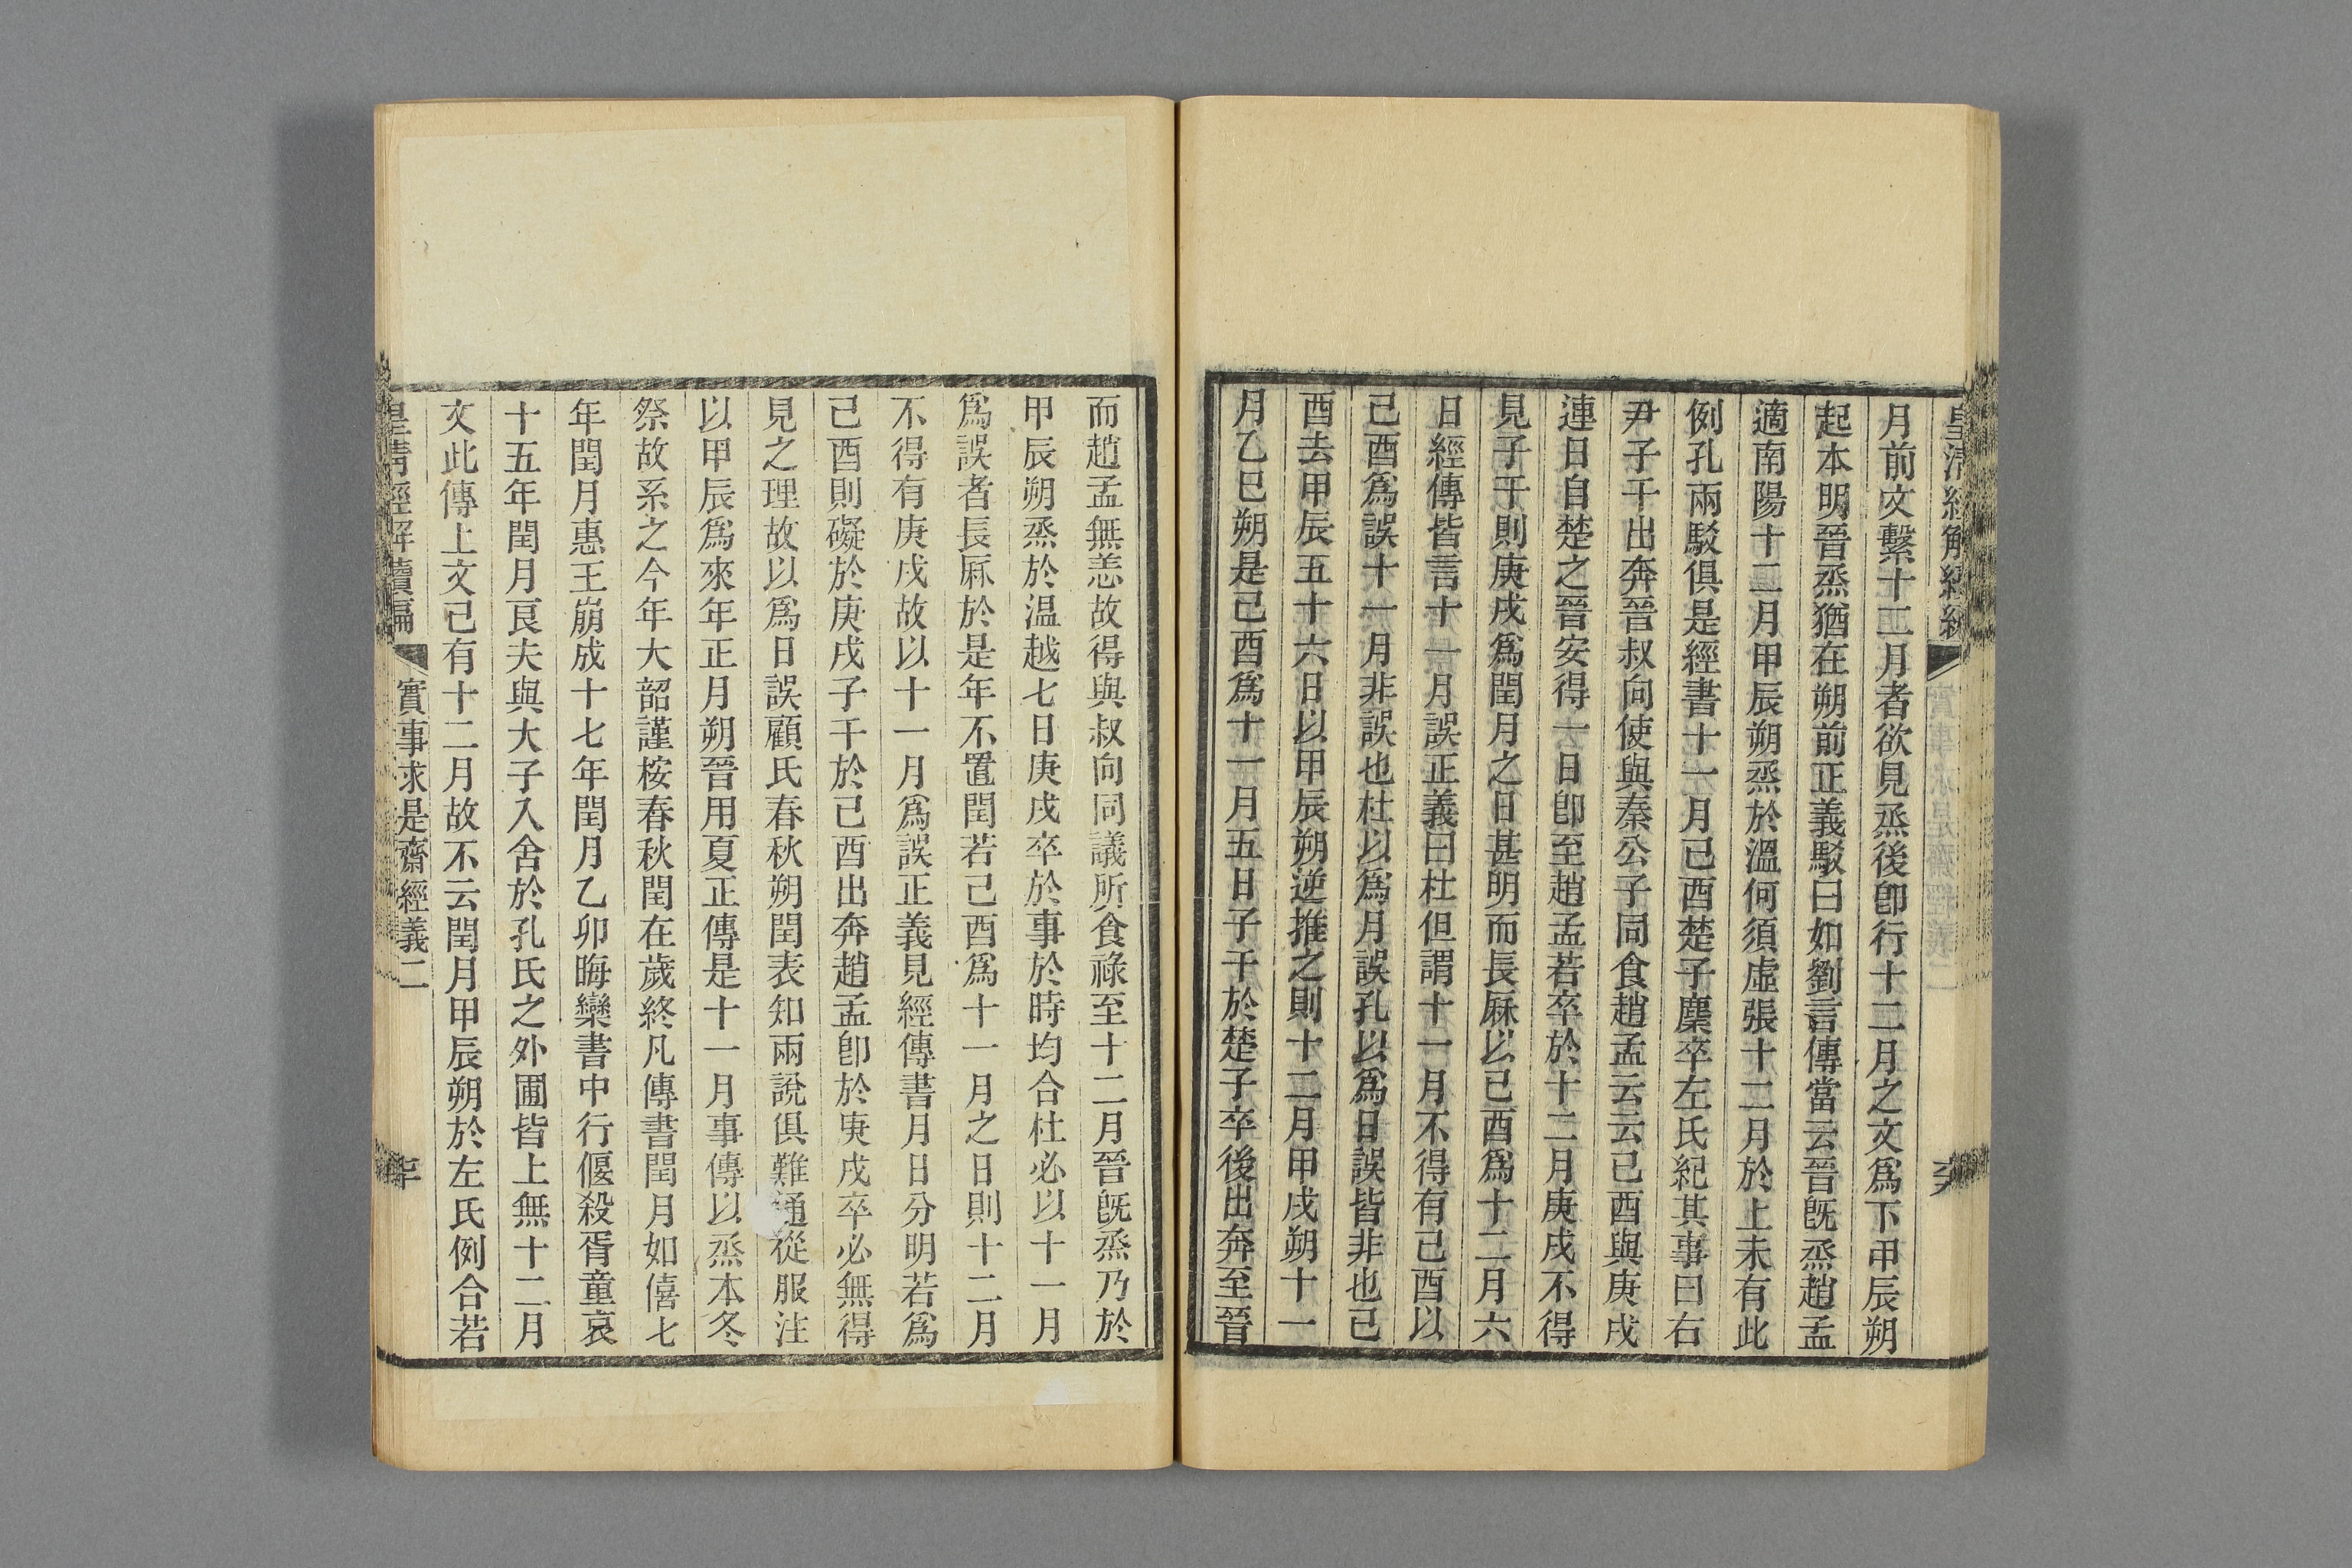 皇清經解續編
月前文繫十二月者欲見烝後卽行十二月之文爲下甲辰朔
起本明晉烝猶在朔前正義駁曰如劉言傳當云晉旣烝趙孟
適南陽十二月甲辰朔烝於溫何須虛張十二月於上未有此
例孔兩駁俱是經書十一月己酉楚子麇卒左氏紀其事曰右
尹子干出奔晉叔向使與秦公子同食趙孟云云己酉與庚戌
連日自楚之晉安得一日卽至趙孟若卒於十二月庚戌不得
見子干則庚戌爲閏月之日甚明而長厤以己酉爲十二月六
日經傳皆言十一月誤正義曰杜但謂十一月不得有己酉以
己酉爲誤十一月非誤也杜以爲月誤孔以爲日誤皆非也己
酉去甲辰五十六日以甲辰朔逆推之則十二月甲戌朔十一
月乙巳朔是己酉爲十一月五日子干於楚子卒後出奔至晉
而趙孟無恙故得與叔向同議所食祿至十二月晉旣烝乃於
甲辰朔烝於温越七日庚戌卒於事於時均合杜必以十一月
爲誤者長厤於是年不置閏若己酉爲十一月之日則十二月
不得有庚戌故以十一月爲誤正義見經傳書月日分明若爲
己酉則礙於庚戌子干於己酉出奔趙孟卽於庚戌卒必無得
見之理故以爲日誤顧氏春秋朔閏表知兩說俱難通從服注
以甲辰爲來年正月朔晉用夏正傳是十一月事傳以烝本冬
祭故系之今年大韶謹桉春秋閏在歲終凡傳書閏月如僖七
年閏月惠王崩成十七年閏月乙卯晦欒書中行偃殺胥童哀
十五年閏月良夫與大子入舍於孔氏之外圃皆上無十二月
文此傳上文己有十二月故不云閏月甲辰朔於左氏例合若
皇清經解續編　實事求是齋經義二